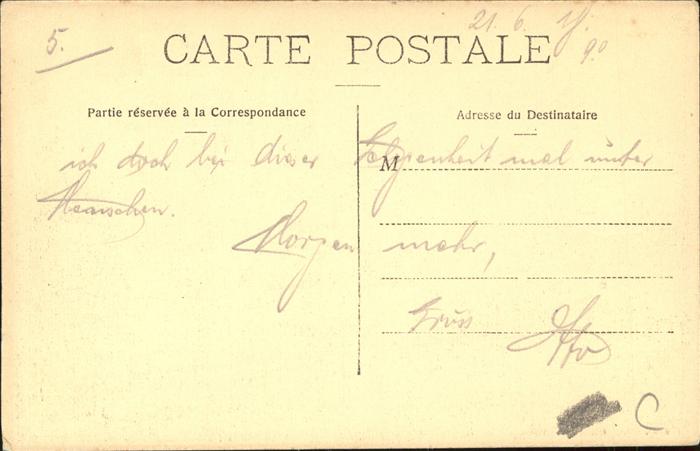 5.
21. 6.
CARTE POSTALE
90
Partie réservée à la Correspondance
Adresse du Destinataire
ich doch bei dieser Gelegenheit mal unter
M
Menschen.
Morgen mehr,
Gruss Otto
C